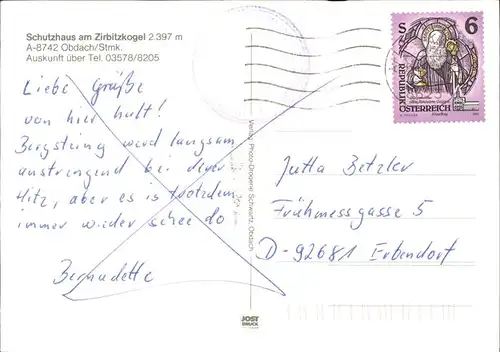 Schutzhaus am Zirbitzkogel 2.397 m
A-8742 Obdach/Stmk.
Auskunft über Tel. 03578/8205
Liebe Grüße
von hier
Bergsteing wird langsam
anstrengend bei dieser
Hitz, aber es is trotzdem
immer wieder schee do
Bernadette
Verlag Photo-Drogerie Schwarz, Obdach
JOST
DRUCK
S 6
REPUBLIK
ÖSTERREICH
Jutta Betzler
Frühmessgasse 5
D-92681 Erbendorf